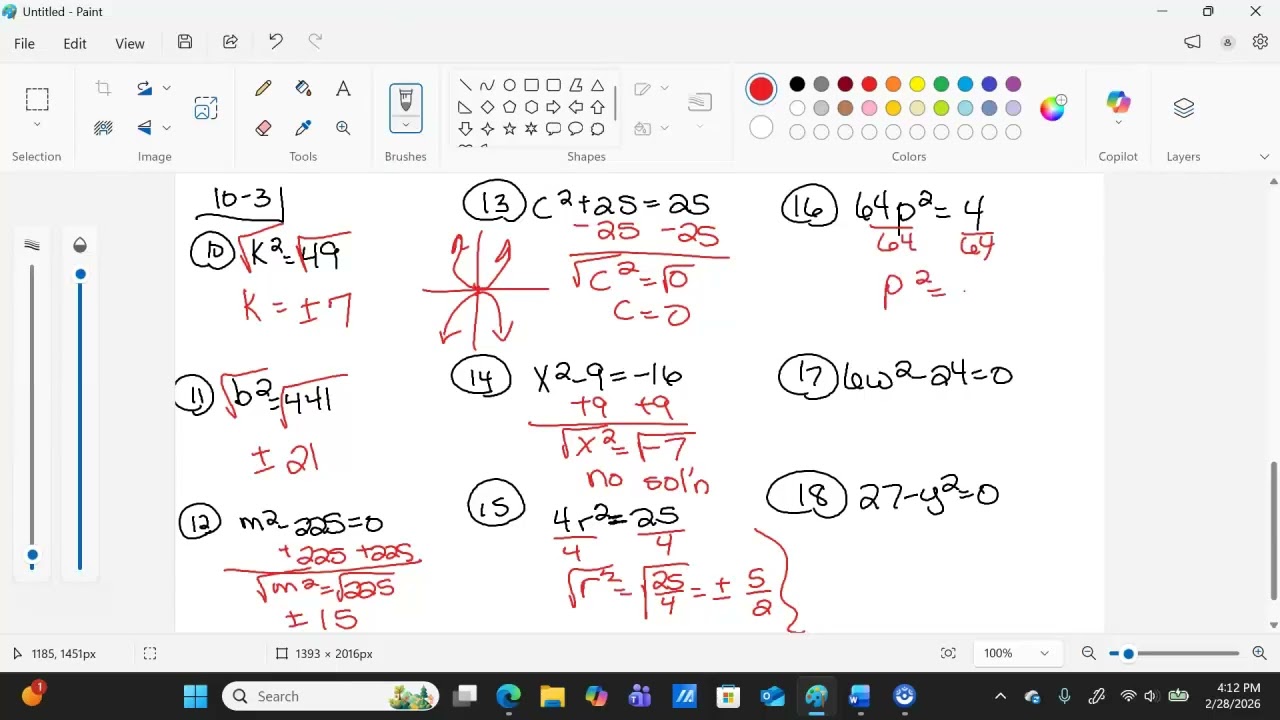 Untitled - Paint
File Edit View
Selection Image Tools Brushes Shapes Colors Copilot Layers
10-3
10 √k² = √49
k = ±7
11 √b² = √441
± 21
12 m² - 225 = 0
+225 +225
√m² = √225
±15
13 c² + 25 = 25
-25 -25
√c² = √0
c = 0
14 x² - 9 = -16
+9 +9
√x² = √-7
no sol'n
15 4r² = 25
4 4
√r² = √25/4 = ± 5/2
16 64p² = 4
64 64
p² =
17 6w² - 24 = 0
18 27 - y² = 0
1185, 1451px
1393 × 2016px
100%
1
Search
4:12 PM
2/28/2026